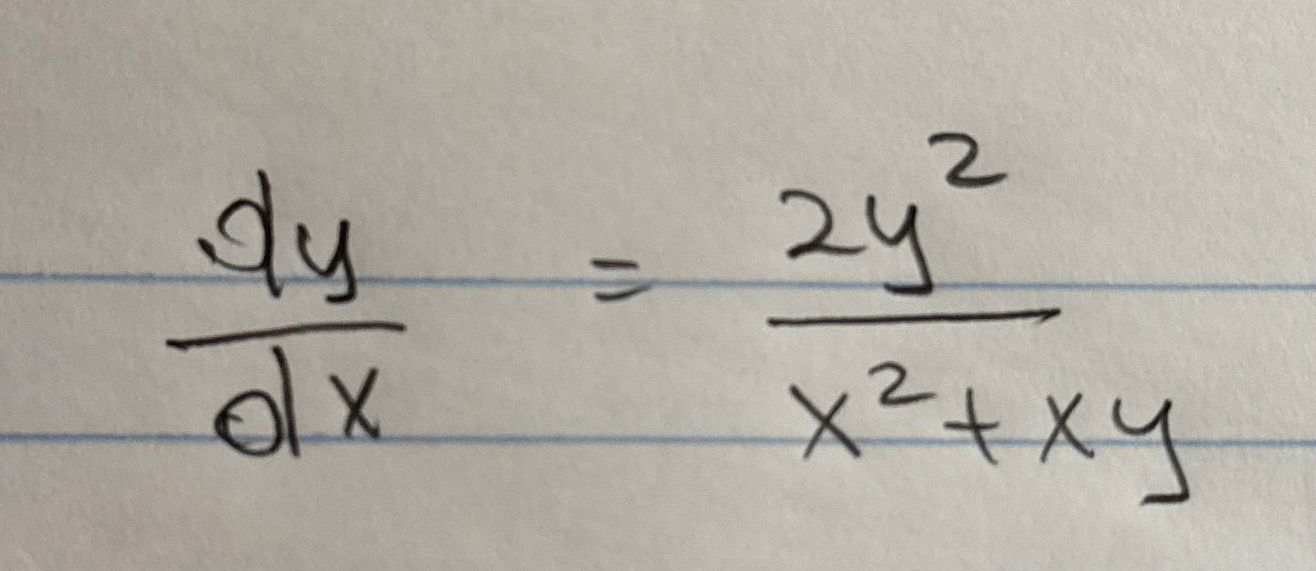 dy/dx = 2y²/(x² + xy)